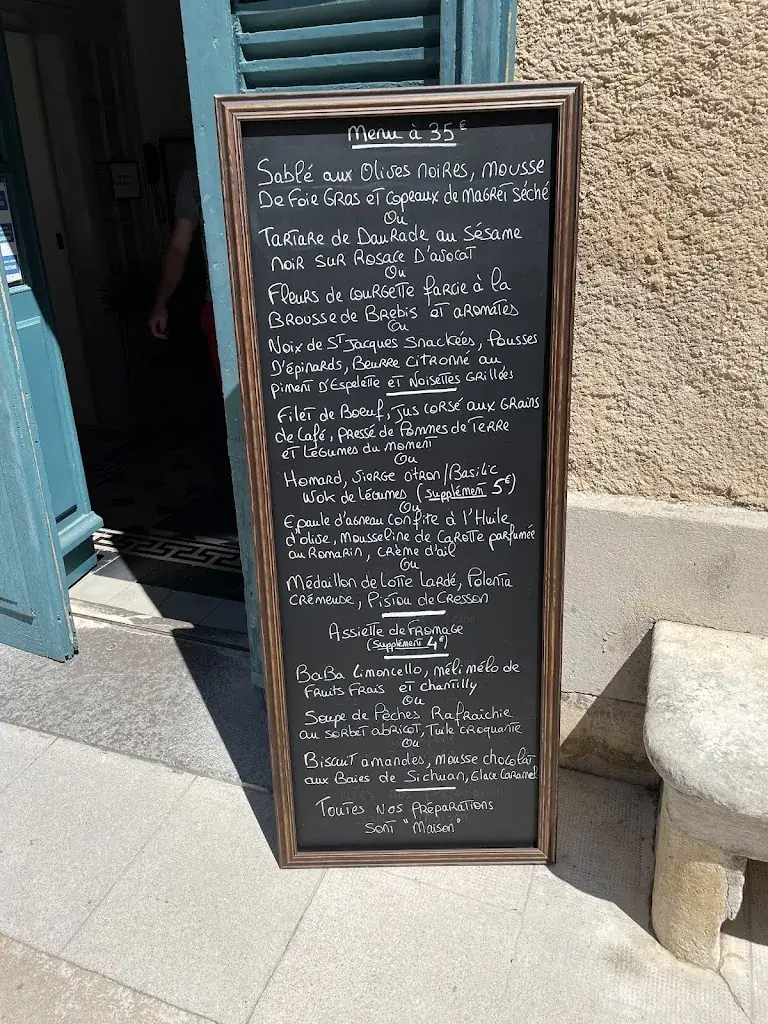 Menu à 35€
Sablé aux Olives noires, mousse
De Foie Gras et copeaux de magret séché
Ou
Tartare de Daurade au Sésame
noir sur Rosace D'avocat
Ou
Fleurs de courgette farcie à la
Brousse de Brebis et aromates
Ou
Noix de St Jacques Snackées, Pousses
D'épinards, Beurre citronné au
piment D'Espelette et Noisettes Grillées
Filet de Boeuf, Jus corsé aux Grains
de Café, pressé de Pommes de Terre
et Légumes du moment
Ou
Homard, Sierge citron/Basilic
Wok de légumes (supplément 5€)
Ou
Epaule d'agneau confite à l'Huile
d'olive, Mousseline de Carotte parfumée
au Romarin, crème d'ail
Ou
Médaillon de Lotte Lardé, Polenta
Crémeuse, Pistou de Cresson
Assiette de Fromage
(Supplément 4€)
BaBa Limoncello, méli mélo de
Fruits Frais et chantilly
Ou
Soupe de Pêches Rafraichie
au sorbet abricot, Tuile croquante
Ou
Biscuit amandes, mousse chocolat
aux Baies de Sichuan, Glace Caramel
Toutes Nos Préparations
sont "Maison"